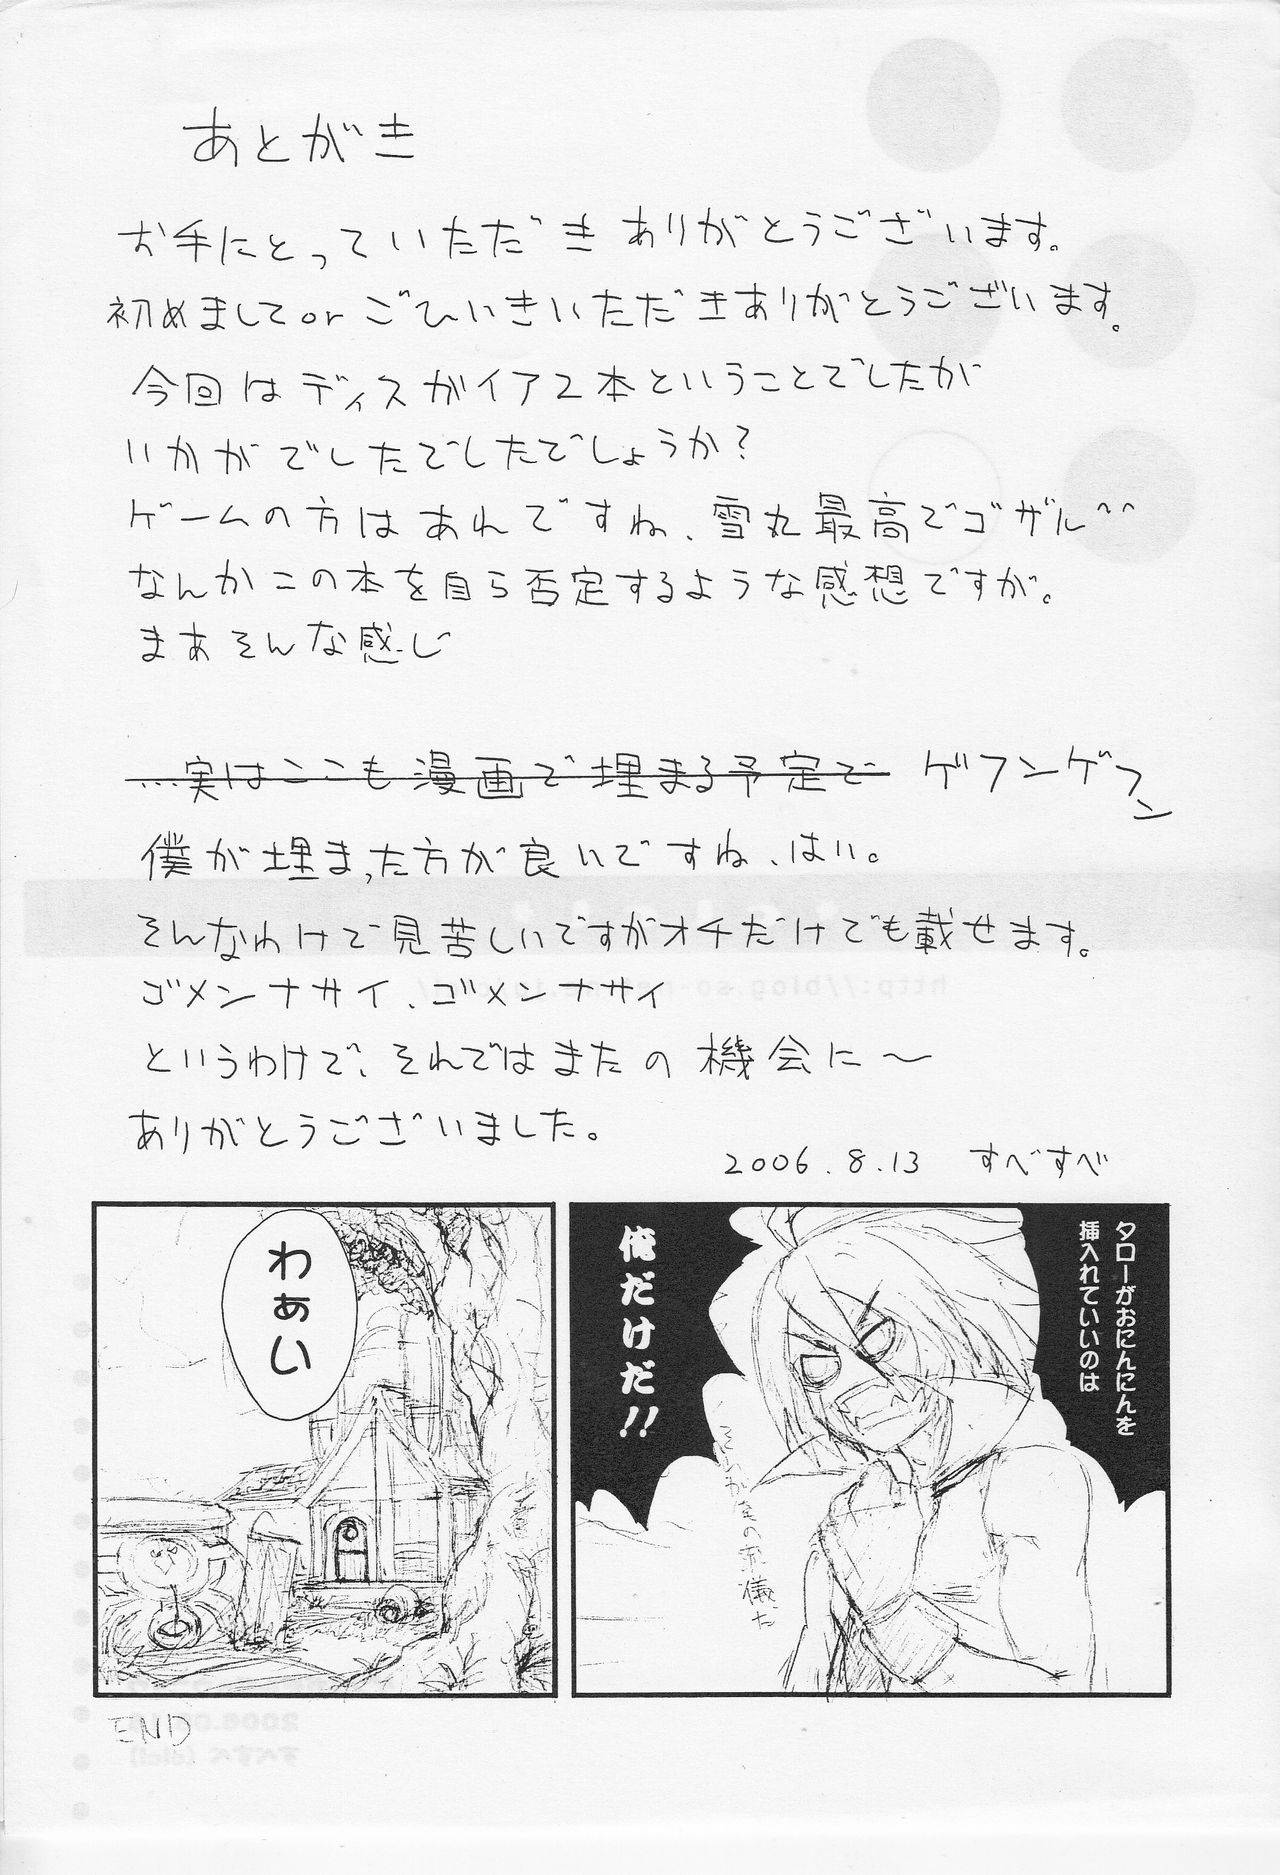 あとがき
お手にとっていただきありがとうございます。
初めましてorごひいきいただきありがとうございます。
今回はディスガイア2本ということでしたが
いかがでしたでしたでしょうか?
ゲームの方はあれですね、雪丸最高でゴザル^^
なんかこの本を自ら否定するような感想ですが。
まあそんな感じ
…実はここも漫画で埋まる予定で ゲフンゲフン
僕が埋まった方が良いですね、はい。
そんなわけで見苦しいですがオチだけでも載せます。
ゴメンナサイ、ゴメンナサイ
というわけで、それではまたの機会に～
ありがとうございました。
2006.8.13 すべすべ
わぁい
END